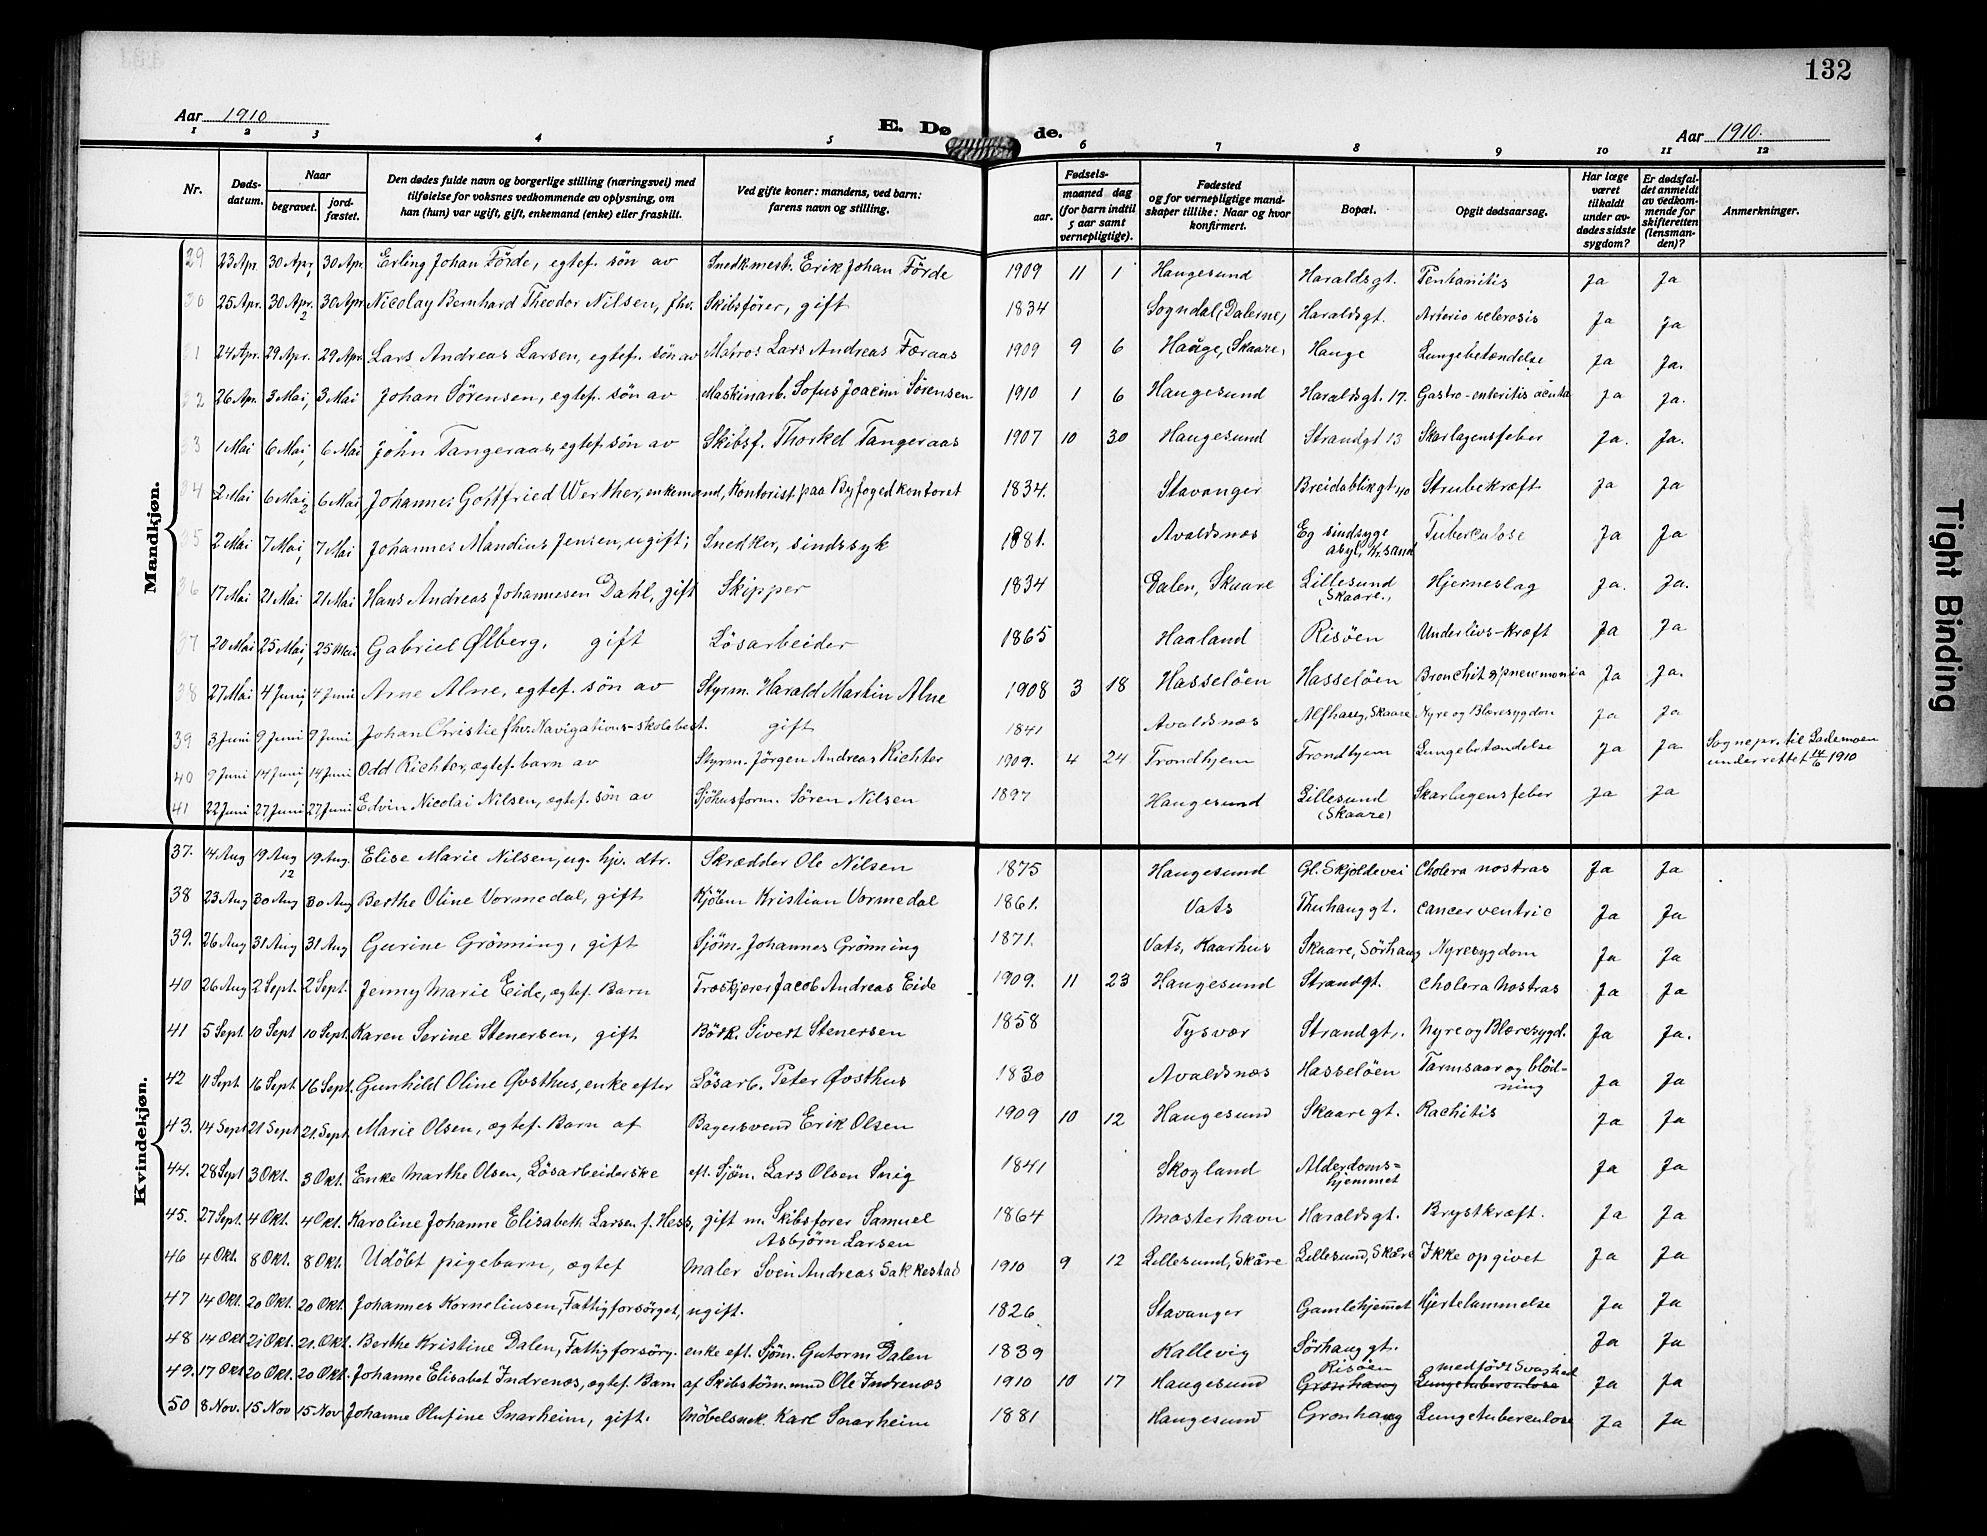 132
Aar 1910
E. Døde.
Aar 1910.
1 2 3 4 5 6 7 8 9 10 11 12
Nr.
Døds-datum.
Naar
begravet.
jord-fæstet.
Den dødes fulde navn og borgerlige stilling (næringsvei) med
tilføielse for voksnes vedkommende av oplysning, om
han (hun) var ugift, gift, enkemand (enke) eller fraskilt.
Ved gifte koner: mandens, ved barn:
farens navn og stilling.
Fødsels-
aar.
maaned dag
(for barn indtil
5 aar samt
vernepligtige).
Fødested
og for vernepligtige mand-
skaper tillike: Naar og hvor
konfirmert.
Bopæl.
Opgit dødsaarsag.
Har læge
været
tilkaldt
under av-
dødes sidste
sygdom?
Er dødsfal-
det anmeldt
av vedkom-
mende for
skifteretten
(lensman-
den)?
Anmerkninger.
Mandkjøn.
29 23 Apr 30 Apr, 30 Apr. Erling Johan Förde, egtef. søn av Snedkmest. Erik Johan Förde 1909 11 1 Haugesund Haraldsgt. Ja Ja
30 25 Apr. 30 Apr. 2 30 Apr Nicolay Bernhard Theodor Nilsen, fhv. Skibsfører, gift 1834 Sogndal, (Dalerne) Haraldsgt. Arterio sclerosis Ja Ja
31 24 Apr. 29 Apr. 29 Apr. Lars Andreas Larsen, egtef. søn av Matros Lars Andreas Færaas 1909 9 6 Hauge, Skaare, Hauge Lungebetændelse Ja Ja.
32 26 Apr. 3 Mai, 3 Mai Johan Sørensen, egtef. søn av Maskinarb. Sofus Joacim Sørensen 1910 1 6 Haugesund Haraldsgt. 17. Gastro-enteritis acuta Ja Ja.
33 1 Mai 6 Mai, 6 Mai John Tangeraas, egtef. søn av Skibsf. Thorkel Tangeraas 1907 10 30 Haugesund Strandgt 13 Skarlagensfeber Ja. Ja.
34 2 Mai 6 Mai 2 6 Mai, Johannes Gottfried Werther, enkemand, Kontorist paa Byfogedkontoret 1834. Stavanger Breidablikgt 40 Strubekræft Ja Ja
35 2 Mai 7 Mai, 7 Mai Johannes Mandius Jensen, ugift; Snedker, sindssyk 1881. Avaldsnæs Eg sindsyge asyl, Kr.sand Tuberculose Ja Ja
36 17 Mai 21 Mai 21 Mai Hans Andreas Johannesen Dahl, gift Skipper 1834 Dalen, Skaare Lillesund (Skaare.) Hjerneslag Ja. Ja.
37 20 Mai 25 Mai, 25 Mai Gabriel Ølberg, gift Løsarbeider 1865 Haaland Risøen Underlivs-kræft Ja Ja
38 27 Mai 4 Juni, 4 Juni Arne Alne, egtef. søn av Styrm. Harald Martin Alne 1908 3 18 Hasseløen Hasseløen Bronchit og pneumonia Ja Ja.
39 3 Juni 9 Juni 9 Juni Johan Christie fhv. Navigations-skolebest. gift 1841 Avaldsnæs Alfhaug, Skaare Nyre og Blæresygdom Ja Ja
40 9 Juni 14 Juni, 14 Juni Odd Richter, ægtef. barn av Styrm. Jörgen Andreas Richter 1909. 4 24 Trondhjem Trondhjem Lungebetændelse Ja Ja Sognepr. til Lademoen underrettet 14/6 1910
41 22 Juni 27 Juni 27 Juni Edvin Nicolai Nilsen, ægtef. søn av Sjøhusform. Sören Nilsen 1897 Haugesund Lillesund (Skaare) Skarlagensfeber Ja Ja
Kvindekjøn.
37. 14 Aug 19 Aug 12 19 Aug. Elise Marie Nilsen, ug. hjv. dtr. Skrædder Ole Nilsen 1875 Haugesund Gl. Skjoldevei Cholera nostras Ja Ja
38 23 Aug 30 Aug 30 Aug Berthe Oline Vormedal, gift Kjöbm Kristian Vormedal 1861. Vats Thuhauggt. Cancer ventric Ja Ja
39. 26 Aug 31 Aug 31 Aug Gurine Grönning, gift Sjöm. Johannes Grönning 1871. Vats, Kaarhus Skaare, Sörhaug Nyresygdom Ja Ja
40 26 Aug 2 Sept. 2 Sept. Jenny Marie Eide, ægtef. Barn Træskjærer Jacob Andreas Eide 1909. 11 23 Haugesund Strandgt. Cholera Nostras Ja Ja
41 5 Sept 10 Sept 10 Sept. Karen Serine Stenersen, gift Bödk. Sivert Stenersen 1858 Tysvær Strandgt,. Nyre og Blæresygd. Ja Ja.
42 11 Sept 16 Sept 16 Sept. Gunhild Oline Østhus, enke efter Lösarb. Peter Østhus 1830 Avaldsnæs Hasseløen Tarmsaar og blöd-ning Ja Ja
43. 14 Sept 21 Sept 21 Sept Marie Olsen, ægtef. Barn af Bagersvend Erik Olsen 1909 10 12 Haugesund Skaaregt. Rachitis Ja Ja
44. 28 Sept 3 Okt. 3 Okt. Enke Marthe Olsen, Lösarbeiderske eft. Sjöm. Lars Olsen Snig 1841 Skogland Alderdoms=hjemmet Ja Ja
45. 27 Sept. 4 Okt. 4 Okt. Karoline Johanne Elisabeth Larsen f. Hess, gift m. Skibsfører Samuel Asbjörn Larsen 1864 Mosterhavn Haraldsgt. Brystkræft. Ja Ja
46 4 Okt. 8 Okt. 8 Okt. Udöbt pigebarn, ægtef Maler Svein Andreas Sakkestad 1910 9 12 Lillesund, Skåre Lillesund, Skåre Ikke opgivet Ja Ja
47 14 Okt. 20 Okt. 20 Okt. Johannes Korneliussen, Fattigforsørget, ugift. 1826 Stavanger Gamlehjemmet Hjertelammelse Ja Ja
48 14 Okt 21 Okt. 21 Okt. Berthe Kristine Dalen, Fattigforsörg. enke eft. Sjöm. Gutorm Dalen 1839 Kallevig Sörhauggt. Ja Ja
49. 17 Okt 20 Okt. 20 Okt. Johanne Elisabet Indrenæs, ægtef. Barn af Skibstöm.mand Ole Indrenæs 1910 10 17 Haugesund Risöen Grønhaug medfödt Svaghed Lungetuberculose Ja Ja
50 8 Nov. 15 Nov 15 Nov Johanne Olufine Snarheim, gift. Möbelsnek. Karl Snarheim 1881 Haugesund Grønhaug Lungetuberculose Ja Ja
Tight Binding